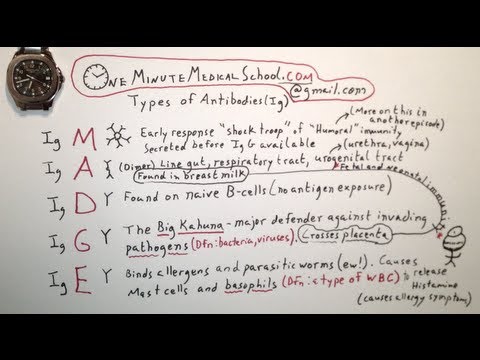 One Minute Medical School.com
@gmail.com
Types of Antibodies (Ig)
(More on this in
another episode)
Ig M Early response "shock troop" of "Humoral" immunity
Secreted before IgG available
(urethra, vagina)
Ig A (Dimer) Line gut, respiratory tract, urogenital tract
Found in breast milk
Fetal and neonatal immuni
Ig D Y Found on naive B-cells (no antigen exposure)
Ig G Y The Big Kahuna - major defender against invading
pathogens (Dfn: bacteria, viruses). Crosses placenta
Ig E Y Binds allergens and parasitic worms (ew!). Causes
Mast cells and basophils (Dfn: a type of WBC) to release
Histamine
(causes allergy symptoms)